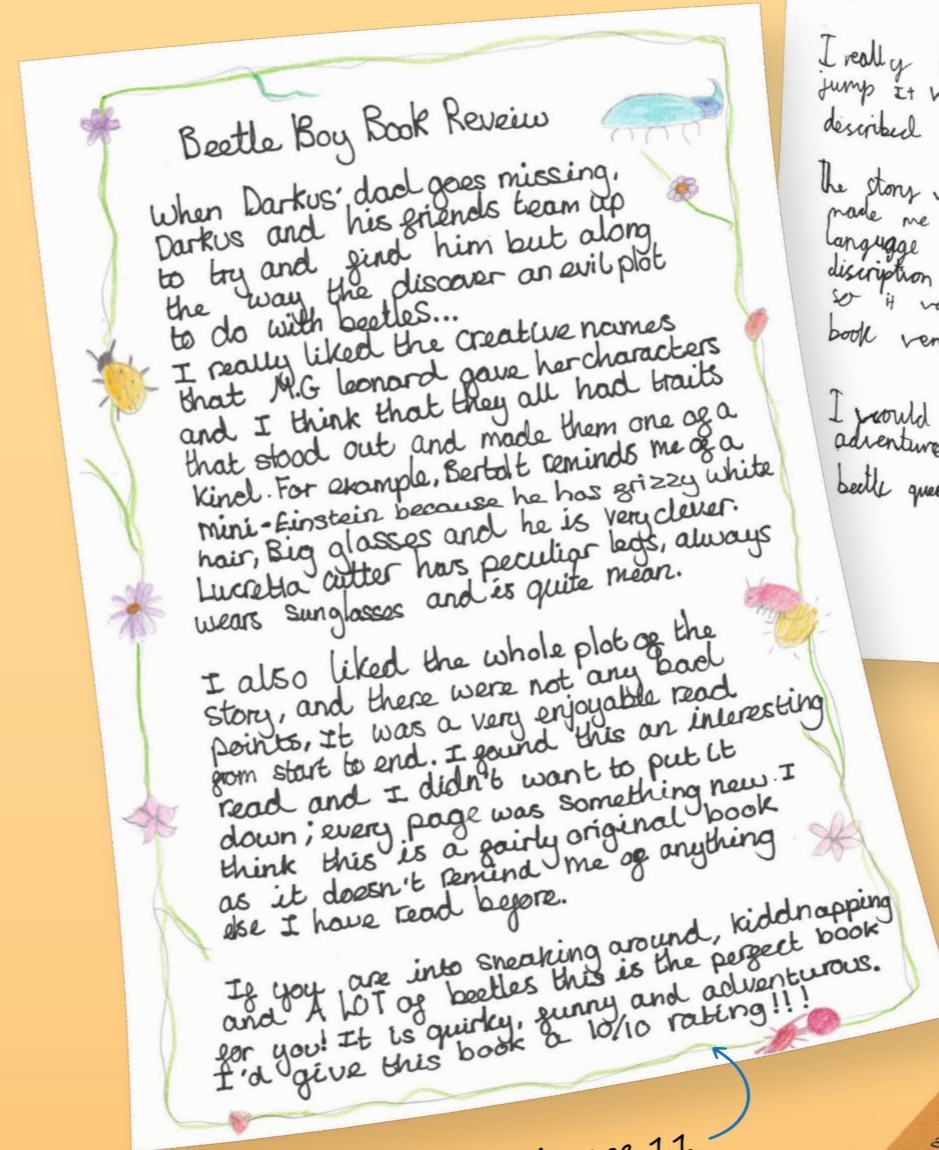 Beetle Boy Book Reveiw
When Darkus' dad goes missing,
Darkus and his friends team up
to try and find him but along
the way the discover an evil plot
to do with beetles...
I really liked the creative names
that M.G leonard gave her characters
and I think that they all had traits
that stood out and made them one of a
kind. For example, Bertolt reminds me of a
mini-Einstein because he has frizzy white
hair, Big glasses and he is very clever.
Lucretia cutter has peculiar legs, always
wears sunglasses and is quite mean.
I also liked the whole plot of the
story, and there were not any bad
points, It was a very enjoyable read
from start to end. I found this an interesting
read and I didn't want to put it
down; every page was something new. I
think this is a fairly original book
as it doesn't remind me of anything
else I have read before.
If you are into sneaking around, kiddnapping
and A LOT of beetles this is the perfect book
for you! It is quirky, funny and adventurous.
I'd give this book a 10/10 rating!!!
11
I really
jump It
described
the story
made me
language
discription
so it
book
I would
adventure
beetle